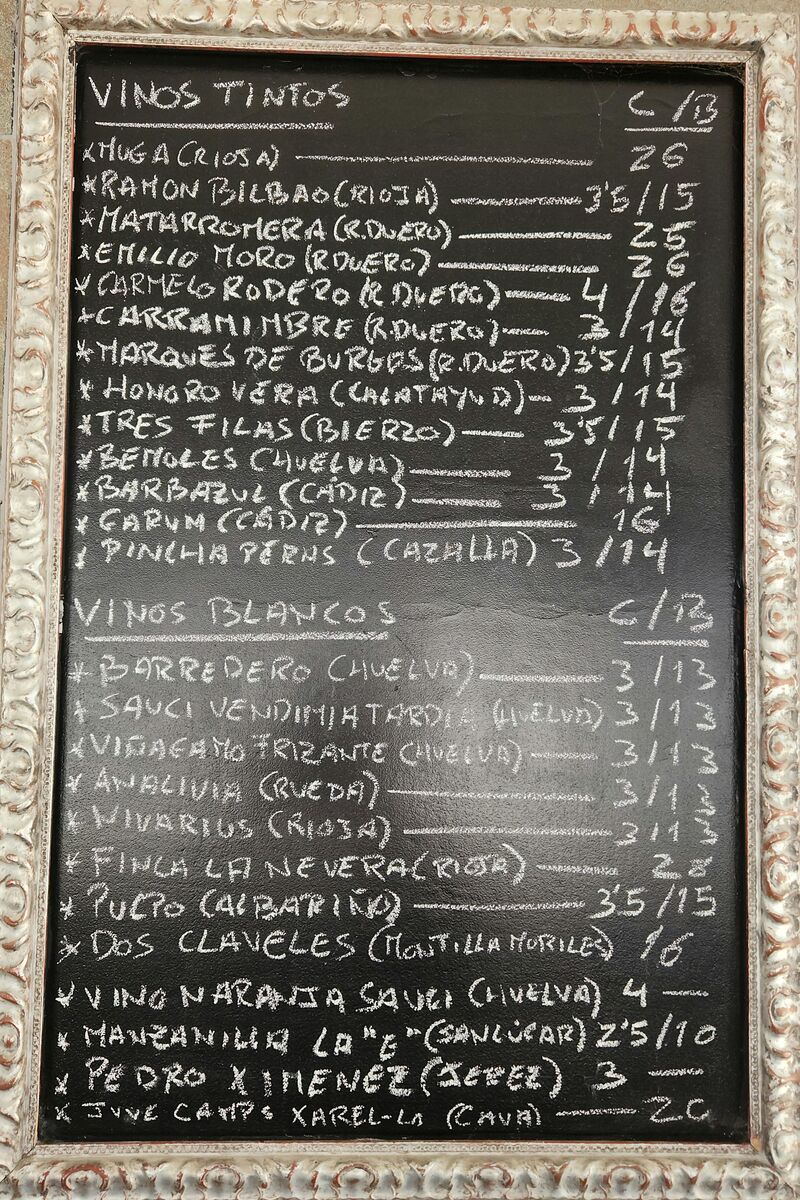 VINOS TINTOS C/B
*MUGA (RIOJA) 26
*RAMON BILBAO (RIOJA) 3'5/15
*MATARROMERA (R.DUERO) 25
*EMILIO MORO (R.DUERO) 26
*CARMELO RODERO (R.DUERO) 4/16
*CARRAMIMBRE (R.DUERO) 3/14
*MARQUES DE BURGES (R.DUERO) 3'5/15
*HONORO VERA (CALATAYUD) 3/14
*TRES FILAS (BIERZO) 3'5/15
*BEMOLES (HUELVA) 3/14
*BARBAZUL (CÁDIZ) 3/14
*GARUM (CÁDIZ) 16
*PINCHAPERAS (CAZALLA) 3/14
VINOS BLANCOS C/B
*BARREDERO (HUELVA) 3/13
*SAUCI VENDIMIA TARDIA (HUELVA) 3/13
*VIÑAGAMO FRIZANTE (HUELVA) 3/13
*ANALIVIA (RUEDA) 3/13
*NIVARIUS (RIOJA) 3/13
*FINCA LA NEVERA (RIOJA) 28
*PULPO (ALBARIÑO) 3'5/15
*DOS CLAVELES (MONTILLA MORILES) 16
*VINO NARANJA SAUCI (HUELVA) 4 —
*MANZANILLA LA "E" (SANLÚCAR) 2'5/10
*PEDRO XIMENEZ (JEREZ) 3 —
*JUVE CAMPS XAREL-LO (CAVA) 20